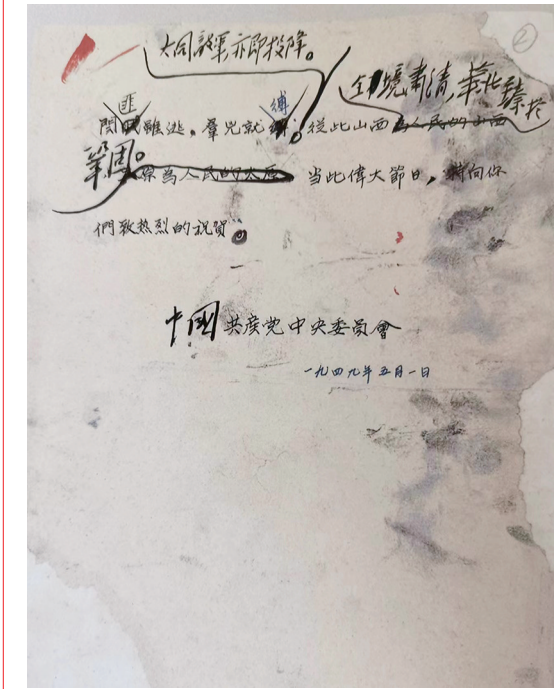 ②
大同敌军亦即投降。
全境肃清，华北臻於
匪 缚
閻 雖逃，羣兇就 。從此山西為人民的山西
巩固。
原為人民的太原 当此偉大節日，特向你
們致热烈的祝賀
中國共産党中央委員會
一九四九年五月一日